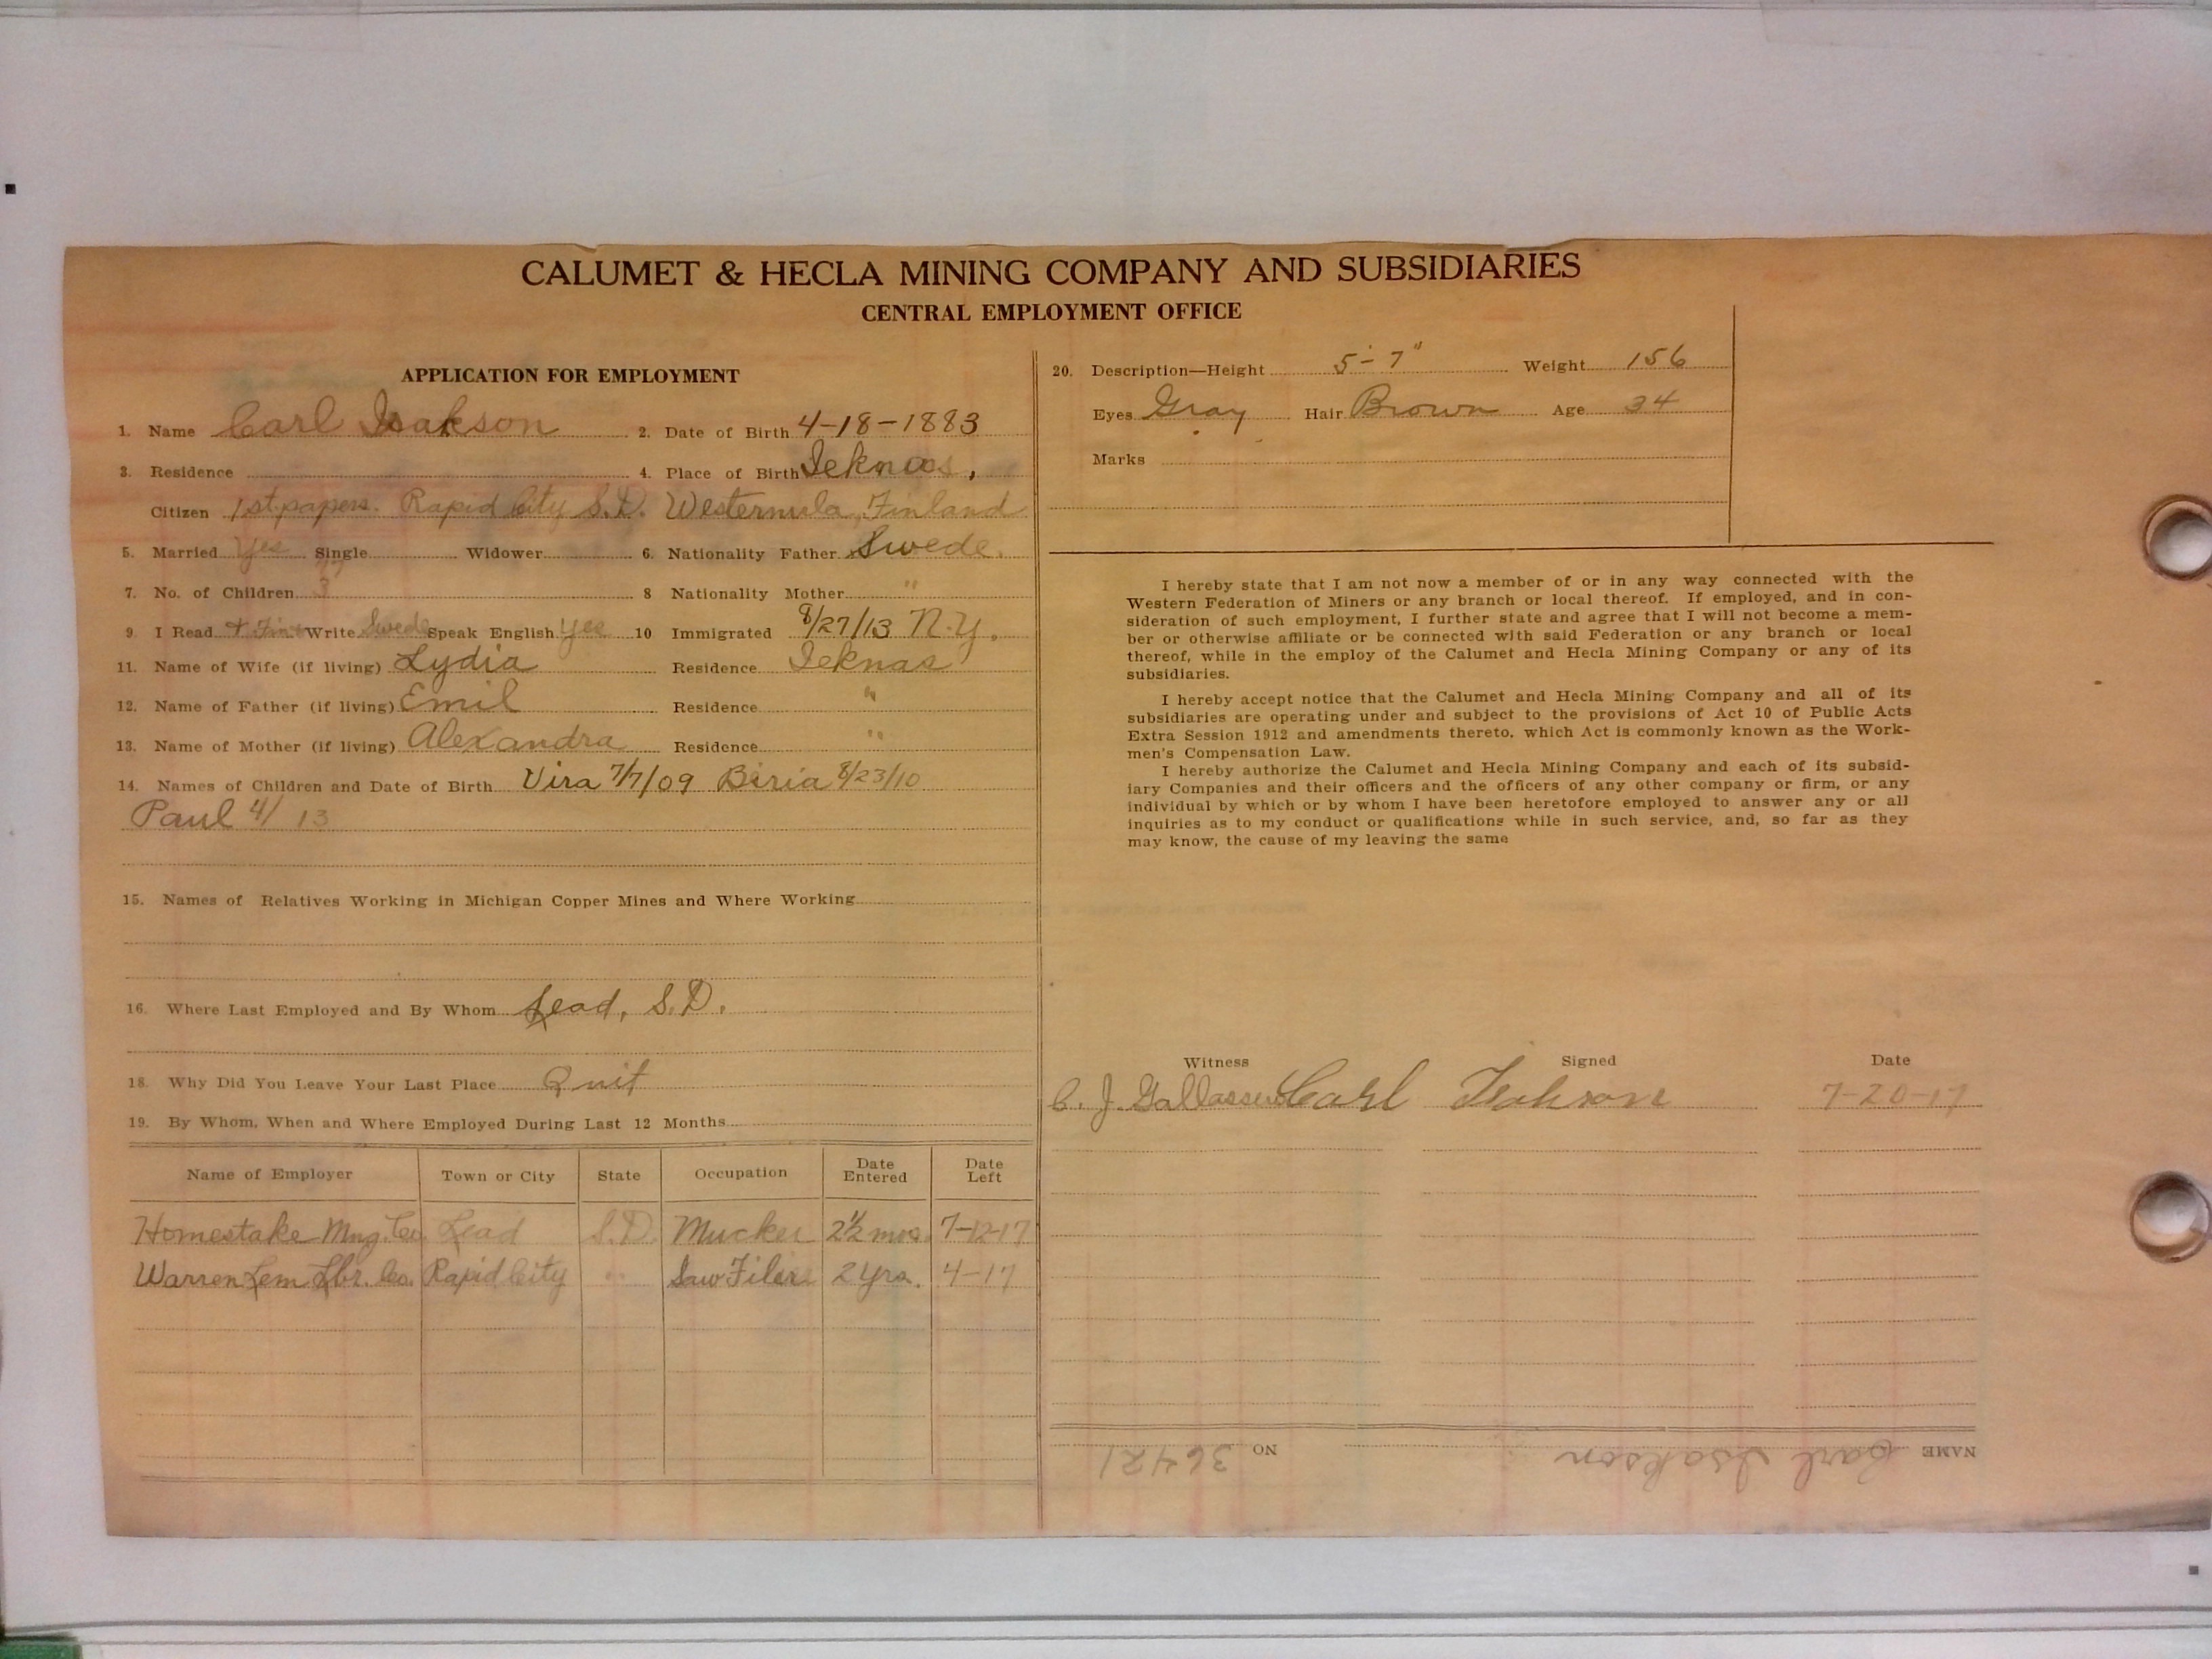 CALUMET & HECLA MINING COMPANY AND SUBSIDIARIES
CENTRAL EMPLOYMENT OFFICE
APPLICATION FOR EMPLOYMENT
1. Name Carl Isakson 2. Date of Birth 4-18-1883
3. Residence 4. Place of Birth Jeknas,
Citizen 1st papers. Rapid City S.D. Westernula, Finland
5. Married Yes Single Widower 6. Nationality Father Swede.
7. No. of Children 3 8 Nationality Mother "
9. I Read + Finn Write Swede Speak English Yes 10 Immigrated 8/27/13 N.Y.
11. Name of Wife (if living) Lydia Residence Jeknas
12. Name of Father (if living) Emil Residence "
13. Name of Mother (if living) Alexandra Residence "
14. Names of Children and Date of Birth Vira 7/7/09 Biria 8/23/10
Paul 4/ 13
15. Names of Relatives Working in Michigan Copper Mines and Where Working
16. Where Last Employed and By Whom Lead, S.D.
18. Why Did You Leave Your Last Place Quit
19. By Whom, When and Where Employed During Last 12 Months
Name of Employer Town or City State Occupation Date Entered Date Left
Homestake Mng. Co. Lead S.D. Mucker 2½ mos. 7-12-17
Warren Lem Lbr. Co. Rapid City " Saw Filer 2 yrs. 4-17
20. Description—Height 5'-7" Weight 156
Eyes Gray Hair Brown Age 34
Marks
I hereby state that I am not now a member of or in any way connected with the
Western Federation of Miners or any branch or local thereof. If employed, and in con-
sideration of such employment, I further state and agree that I will not become a mem-
ber or otherwise affiliate or be connected with said Federation or any branch or local
thereof, while in the employ of the Calumet and Hecla Mining Company or any of its
subsidiaries.
I hereby accept notice that the Calumet and Hecla Mining Company and all of its
subsidiaries are operating under and subject to the provisions of Act 10 of Public Acts
Extra Session 1912 and amendments thereto, which Act is commonly known as the Work-
men's Compensation Law.
I hereby authorize the Calumet and Hecla Mining Company and each of its subsid-
iary Companies and their officers and the officers of any other company or firm, or any
individual by which or by whom I have been heretofore employed to answer any or all
inquiries as to my conduct or qualifications while in such service, and, so far as they
may know, the cause of my leaving the same
Witness Signed Date
C. J. Carl Isakson 7-20-17
NAME Carl Isakson NO 36421